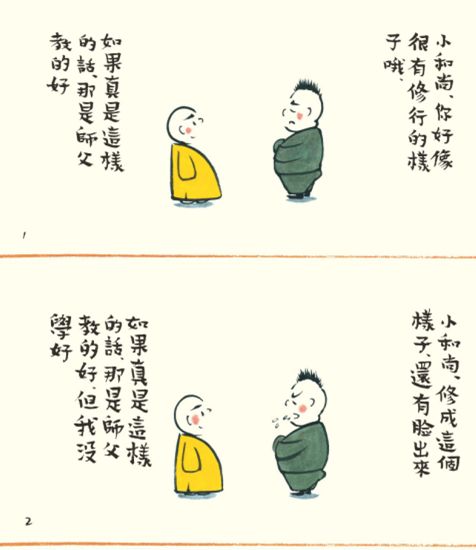 小和尚、你好像
很有修行的樣
子哦、
如果真是這樣
的話、那是師父
教的好
1
小和尚、修成這個
樣子、還有脸出來
如果真是這樣
的話、那是師父
教的好、但我没
學好
2